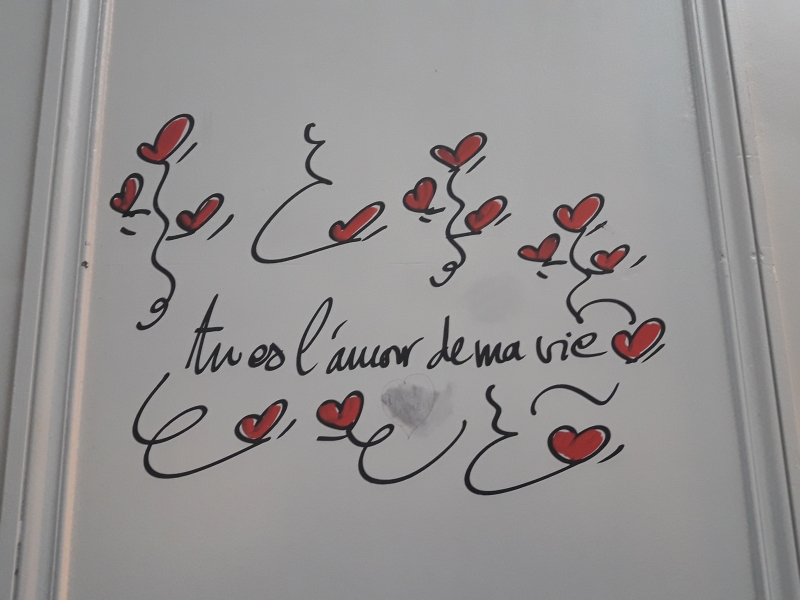 tu es l'ámour de ma vie